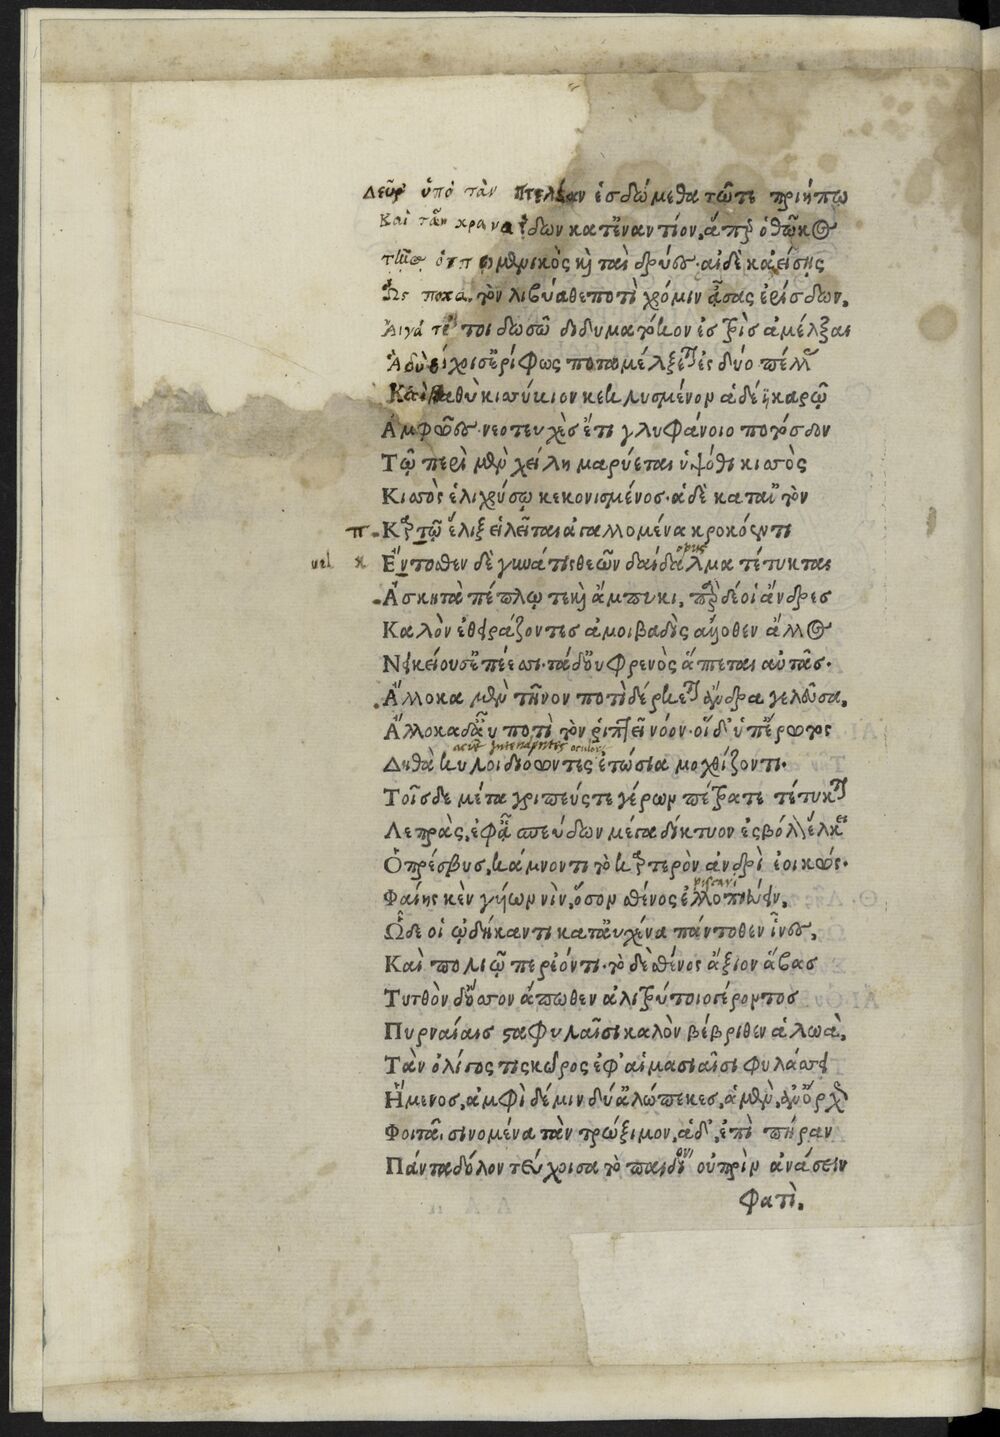 Δεῦρ' ὑπὸ τὰν πτελέαν ἑσδώμεθα τῶτε πριήπω
Καὶ τᾶν κρανα ίδων κατέναντίον, ἅπερ ὁ θῶκος
τῆνος ὁ ποιμενικὸς καὶ ταὶ δρύες. αἰδὲ κἀείσης
Ὡς ποκα τὸν λιβύαθε ποτὶ χρόμιν ᾆσας ἐρίσδων.
Αἶγά τέ τοι δωσῶ διδυματόκον ἐς τρὶς ἀμέλξαι
Ἃ δύ' ἔχοισ' ἐρίφως ποταμέλξεται ἐς δύο πέλλας
Καὶ βαθὺ κισσύβιον κεκλυσμένον ἁδέϊ καρῷ
Ἀμφῶες. νεοτευχὲς ἔτι γλυφάνοιο ποτόσδον
Τῷ περὶ μὲν χείλη μαρύεται ὑψόθι κισσὸς
Κισσὸς ἑλιχρύσῳ κεκονισμένος. ἁ δὲ κατ' αὐτὸν
π. Καρτῷ ἕλιξ εἱλεῖται ἀγαλλομένα κροκόεντι
opus
vel κ Ἔντοσθεν δὲ γυνά τις θεῶν δαίδαλμα τέτυκται
Ἀσκητὰ πέπλῳ τε καὶ ἄμπυκι. παρ δέ οἱ ἄνδρες
Καλὸν ἐθειράζοντες ἀμοιβαδὶς ἄλλοθεν ἄλλος
Νεικείουσ' ἐπέεσσι. τάδ' οὐ φρενὸς ἅπτεται αὐτᾶς.
Ἄλλοκα μὲν τῆνον ποτιδέρκεται ἄνδρα γελοῦσα.
Ἄλλοκα δ' αὖ ποτὶ τὸν ῥιπτεῖ νόον. οἵδ' ὑπ' ἔρωτος
acute intendentes oculos
Δηθὰ κυλοιδιόωντες ἐτώσια μοχθίζοντι.
Τοῖς δὲ μέτα γριπεύς τε γέρων πέτρα τε τέτυκται
Λεπρὰς, ἐφ' ᾇ σπεύδων μέγα δίκτυον ἐς βόλον ἕλκει
Ὁ πρέσβυς, κάμνοντι τὸ καρτερὸν ἀνδρὶ ἐοικώς.
piscari
Φαίης κὲν γυίων νὶν, ὅσον σθένος ἐλλοπιεύειν.
Ὧδέ οἱ ᾠδήκαντι κατ' αὐχένα πάντοθεν ἶνες.
Καὶ πολιῷ περ ἐόντι. τὸ δὲ σθένος ἄξιον ἅβας
Τυτθὸν δ' ὅσσον ἄπωθεν ἁλιτρύτοιο γέροντος
Πυρναίαις σταφυλαῖσι καλὸν βέβριθεν ἁλωὰ.
Τὰν ὀλίγος τις κῶρος ἐφ' αἱμασιαῖσι φυλάσσει
Ἥμενος. ἀμφὶ δέ μιν δύ' ἀλώπεκες. ἁ μὲν, ἀν' ὄρχως
Φοιτᾷ σινομένα τὰν τρώξιμον. ἁ δ', ἐπὶ πήραν
Πάντα δόλον τεύχοισα τὸ παιδίον οὐ πρὶν ἀνάσειν
Φατὶ.